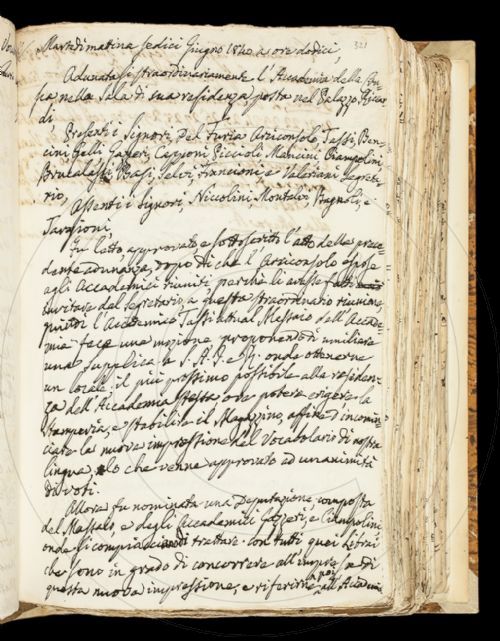 321
Martedi matina sedici Giugno 1840 a ore dodici,
Adunatasi straordinariamente l'Accademia della Cru-
sca nella Sala di sua residenza, posta nel Palazzo Riccar-
di,
Presenti i Signori, Del Furia Arciconsolo, Tassi, Ben-
cini Gelli Gazzeri, Capponi Piccioli Mancini, Ciampolini,
Brucalassi, Basi, Selvi, Franceoni e Valeriani Segreta-
rio,
Assenti i Signori, Niccolini Montalvi Bagnoli, e
Targioni.
Fu letto, approvato e sottoscritto l'atto della prece-
dente adunanza, dopo di che l'Arciconsolo espose
agli Accademici riuniti, perchè li avesse fatti
invitare dal Segretario, a questa straordinaria riunione,
quindi l'Accademico Tassi attual Massaio dell'Accade-
mia fece una mozione proponendo di umiliare
una supplica a S. A. I. e R. onde ottenerne
un locale il più prossimo possibile alla residen-
za dell'Accademia stessa, ove potere erigere la
Stamperia, e stabilire il Magazzino, affine d'incomin-
ciare la nuova impressione del Vocabolario di nostra
lingua, lo che venne approvato ad unanimità
di voti.
Allora fu nominata una Deputazione, composta
del Massaio, e degli Accademici Gazzeri, e Ciampolini,
onde si compiacciano trattare con tutti quei Librai
che sono in grado di concorrere all'impresa di
questa nuova impressione, e riferirne a poi all'Accade